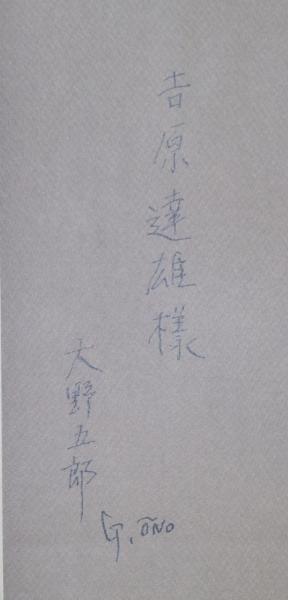 吉原達雄様
大野五郎
G. ŌNO